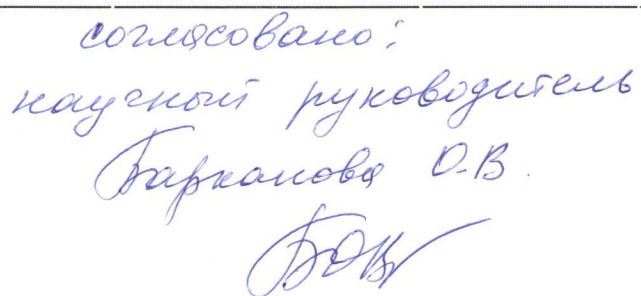 согласовано:
научный руководитель
Барканова О.В.